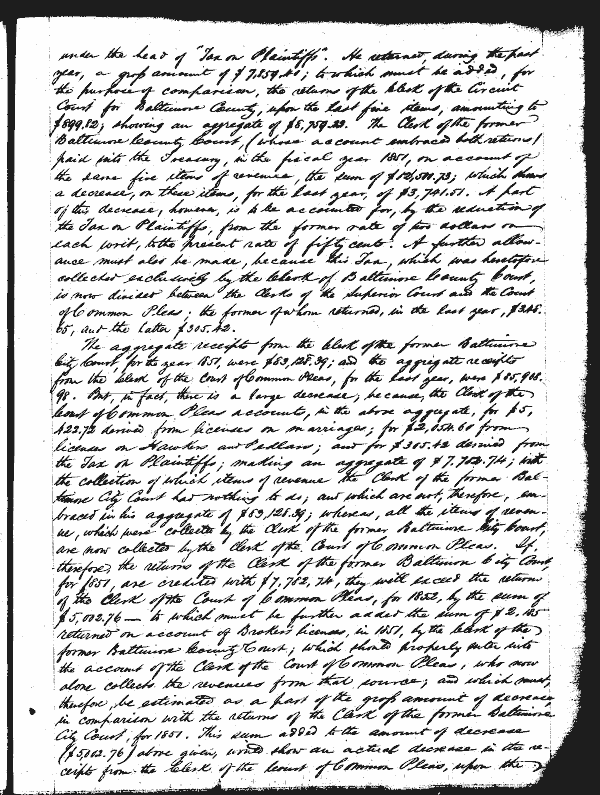 under the head of "Tax on Plaintiffs". He returned, during the past
year, a gross amount of $7,859.40; to which must be added, for
the purpose of comparison, the returns of the Clerk of the Circuit
Court for Baltimore County, upon the last five items, amounting to
$899.82; showing an aggregate of $8,759.22. The Clerk of the former
Baltimore County Court, (whose account embraced both returns)
paid into the Treasury, in the fiscal year 1851, on account of
the same five items of revenue, the sum of $12,500.73; which shows
a decrease, on these items, for the last year, of $3,741.51. A part
of this decrease, however, is to be accounted for, by the reduction of
the Tax on Plaintiffs, from the former rate of two dollars on
each writ, to the present rate of fifty cents. A further allow-
ance must also be made, because this Tax, which was heretofore
collected exclusively by the Clerk of Baltimore County Court,
is now divided between the Clerks of the Superior Court and the Court
of Common Pleas; the former of whom returned, in the last year, $345.
65, and the latter $305.42.
The aggregate receipts from the Clerk of the former Baltimore
City Court, for the year 1851, were $83,128.39; and the aggregate receipts
from the Clerk of the Court of Common Pleas, for the last year, were $85,908.
98. But, in fact, there is a large decrease; because, the Clerk of the
Court of Common Pleas accounts, in the above aggregate, for $5,
422.72 derived from licenses on marriages; for $2,054.60 from
licenses on Hawkers and Pedlars; and for $305.42 derived from
the Tax on Plaintiffs; making an aggregate of $7,782.74; with
the collection of which items of revenue the Clerk of the former Bal-
timore City Court had nothing to do; and which are not, therefore, em-
braced in his aggregate of $83,128.39; whereas, all the items of reven-
ue, which were collected by the Clerk of the former Baltimore City Court,
are now collected by the Clerk of the Court of Common Pleas. If,
therefore, the returns of the Clerk of the former Baltimore City Court
for 1851, are credited with $7,782.74, they will exceed the return
of the Clerk of the Court of Common Pleas, for 1852, by the sum of
$5,002.76 — to which must be further added the sum of $2,
returned on account of Brokers licenses, in 1851, by the Clerk of the
former Baltimore County Court; which should properly enter into
the account of the Clerk of the Court of Common Pleas, who now
alone collects the revenues from that source; and which must,
therefore, be estimated as a part of the gross amount of decrease,
in comparison with the returns of the Clerk of the former Baltimore
City Court, for 1851. This sum added to the amount of decrease
($5,002.76) above given, would show an actual decrease in the re-
ceipts from the Clerk of the Court of Common Pleas, upon the